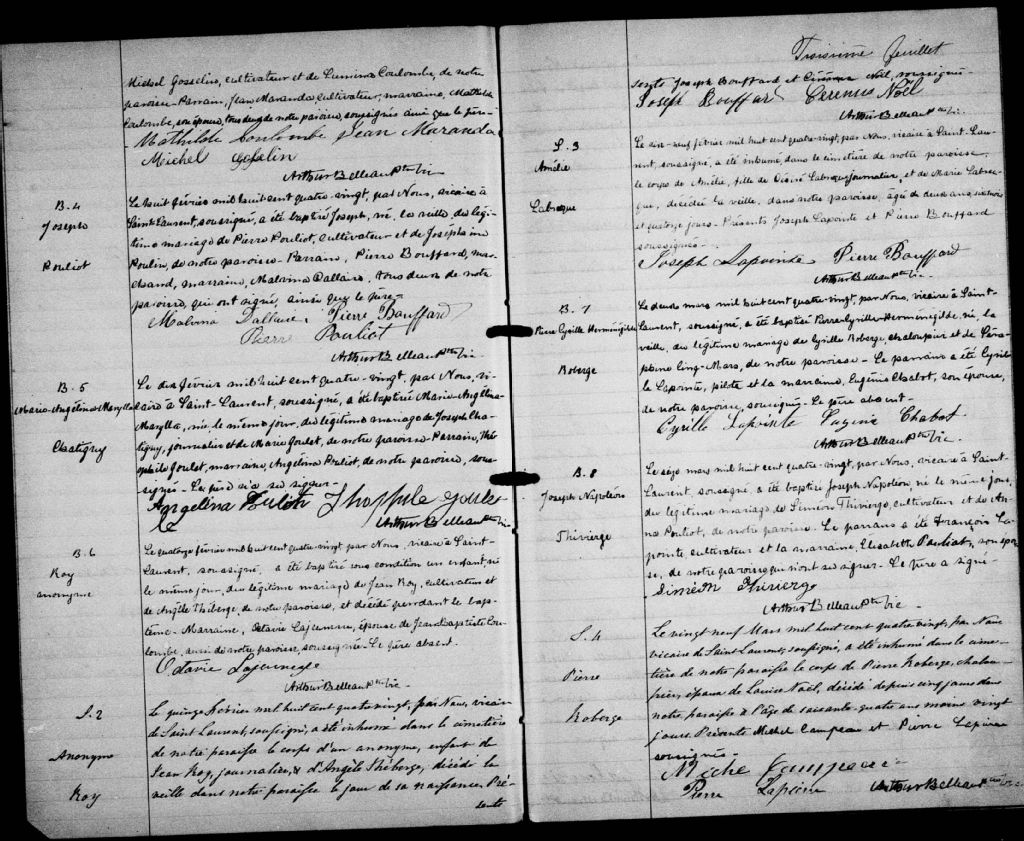 Michel Gosselin, cultivateur et de Lumina Coulombe, de notre
paroisse. Parrain, Jean Maranda cultivateur, marraine, Mathilde
Coulombe, son épouse, tous deux de notre paroisse, soussignés ainsi que le père.
Mathilde Coulombe Jean Maranda
Michel Gosselin
Arthur Belleau Ptre Vic
B. 4
Joseph
Pouliot
Le huit février mil huit cent quatre-vingt, par Nous, vicaire à
Saint-Laurent, soussigné, a été baptisé Joseph, né, la veille, du légi-
time mariage de Pierre Pouliot, cultivateur et de Josephine
Poulin, de notre paroisse. Parrain, Pierre Bouffard, mar-
chand, marraine, Malvina Dallaire, tous deux de notre
paroisse, qui ont signé, ainsi que le père.
Malvina Dallaire Pierre Bouffard
Pierre Pouliot
Arthur Belleau Ptre Vic
B. 5
Marie-Angélina Marylla
Chatigny
Le dix février mil huit cent quatre-vingt, par Nous, vi-
caire à Saint-Laurent, soussigné, a été baptisée Marie-Angélina-
Marylla, née le même jour, du légitime mariage de Joseph Cha-
tigny, journalier et de Marie Goulet, de notre paroisse. Parrain, Thé-
ophile Goulet, marraine, Angélina Pouliot, de notre paroisse, sous-
signés. Le père n'a su signer.
Angelina Thophile Goulet
Arthur Belleau Ptre Vic
B. 6
Roy
anonyme
Le quatorze février mil huit cent quatre-vingt par Nous, vicaire à Saint-
Laurent, soussigné, a été baptisé sous condition un enfant né
le même jour, du légitime mariage de Jean Roy, cultivateur et
de Angèle Thiberge, de notre paroisse, et décédé pendant le bap-
tême. Marraine, Octavie Lajeunesse, épouse de Jean-Baptiste Cou-
lombe, aussi de notre paroisse, soussignée. Le père absent.
Octavie Lajeunesse
Arthur Belleau Ptre Vic
S. 2
Anonyme
Roy
Le quinze Février mil huit cent quatre vingt, par Nous, vicaire
de Saint Laurent, soussigné, a été inhumé dans le cimetière
de notre paroisse le corps d'un anonyme, enfant de
Jean Roy, journalier, & d'Angèle Théberge, décédé la
veille dans notre paroisse le jour de sa naissance, Pré-
sents
Troisième feuillet
sents Joseph Bouffard et Noël, soussignés.
Joseph Bouffard Cerenus Noël
Arthur Belleau Ptre Vic
S. 3
Amélie
Labreque
Le dix-neuf février mil huit cent quatre-vingt, par Nous, vicaire à Saint-Lau-
rent, soussigné, a été inhumé, dans le cimetière de notre paroisse,
le corps de Amélie, fille de Désiré Labreque journalier, et de Marie Labre-
que, décédée la veille, dans notre paroisse, âgée de deux ans six mois
et quatorze jours. Présents Joseph Lapointe et Pierre Bouffard
soussignés.
Joseph Lapointe Pierre Bouffard
Arthur Belleau Ptre Vic
B. 7
Pierre Cyrille Herménégilde
Roberge
Le deux mars mil huit cent quatre-vingt, par Nous, vicaire à Saint-
Laurent, soussigné, a été baptisé Pierre-Cyrille-Herménégilde, né, la
veille, du légitime mariage de Cyrille Roberge, chaloupier et de Séra-
phine Cinq-Mars, de notre paroisse. Le parrain a été Cyril-
le Lapointe, pilote et la marraine, Eugénie Chabot, son épouse,
de notre paroisse, soussignés. Le père absent.
Cyrille Lapointe Eugénie Chabot
Arthur Belleau Ptre Vic.
B. 8
Joseph Napoléon
Thivierge
Le seize mars mil huit cent quatre-vingt, par Nous, vicaire à Saint-
Laurent, soussigné, a été baptisé Joseph Napoléon, né le même jour,
du légitime mariage de Siméon Thivierge, cultivateur et de An-
na Pouliot, de notre paroisse. Le parrain a été François La-
pointe cultivateur et la marraine, Elisabeth Pouliot, son épou-
se, de notre paroisse qui n'ont su signer. Le père a signé.
Siméon Thivierge
Arthur Belleau Ptre Vic.
S. 4
Pierre
Roberge
Le vingt neuf Mars mil huit cent quatre vingt, par Nous
vicaire de Saint Laurent, soussigné, a été inhumé dans le cime-
tière de notre paroisse le corps de Pierre Roberge, chalou-
pier, époux de Louise Noël, décédé depuis cinq jours dans
notre paroisse à l'âge de soixante quatre ans moins vingt
jours Présents Michel Campeau et Pierre Lapierre
soussignés.
Miche Campeau
Pierre Lapierre Arthur Belleau Ptre Vic